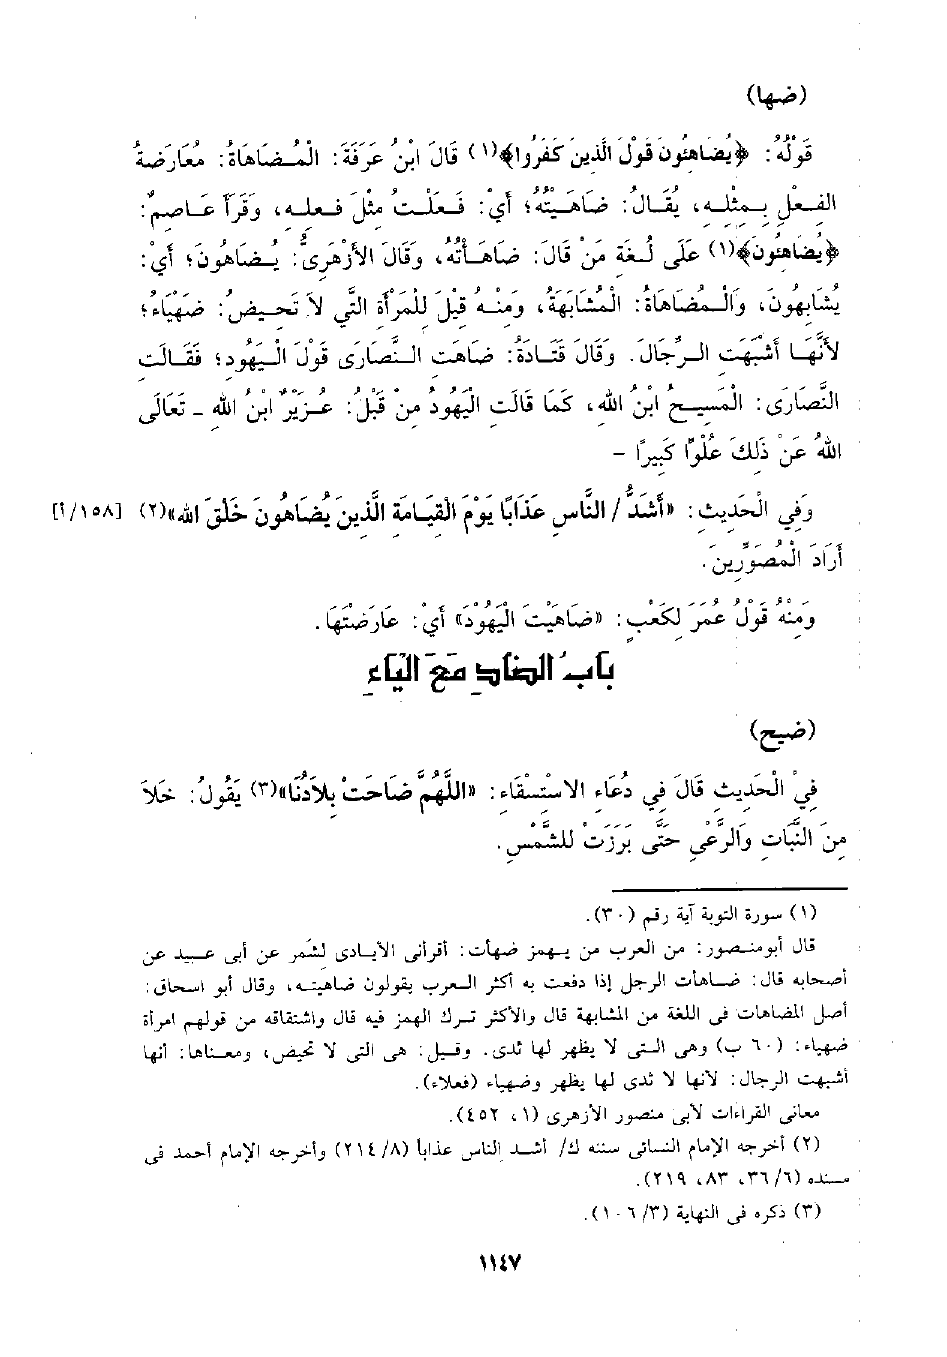 (ضها)
قَوْلُهُ: ﴿يُضَاهِئُونَ قَوْلَ الَّذِينَ كَفَرُوا﴾(١) قَالَ ابْنُ عَرَفَةَ: الْمُضَاهَاةُ: مُعَارَضةُ
الفِعْلِ بِمثْلِه، يُقَالُ: ضَاهَيتُهُ؛ أيْ: فَعَلْتُ مثْلَ فعله، وَقَرَأَ عَاصِمٌ:
﴿يُضَاهِئُونَ﴾(١) عَلَى لُغَة مَنْ قَالَ: ضَاهَأتُه، وَقَالَ الأزْهَرِىُّ: يُضَاهُونَ؛ أيْ:
يُشَابِهُونَ، وَالْمُضَاهَاةُ: الْمُشَابَهَةُ، وَمنْهُ قيْلَ للمَرْأَة التَّي لاَ تَحيضُ: ضَهْيَاءُ؛
لأَنَّهَا أشْبَهَتِ الرِّجَالَ. وَقَالَ قَتَادَةُ: ضَاهَتِ النَّصَارَى قَوْلَ الْيَهُود؛ فَقَالَت
النَّصَارَى: الْمَسيحُ ابْنُ اللهِ، كَمَا قَالَتِ الْيَهُودُ مِنْ قَبْلُ: عُزَيْرٌ ابْنُ اللهِ - تَعَالَى
اللهُ عَنْ ذَلِكَ عُلُوّا كَبيرًا -
وَفِي الْحَدِيثِ: «أَشَدُّ / النَّاسِ عَذَابًا يَوْمَ الْقِيَامَة الَّذينَ يُضَاهُونَ خَلْقَ الله»(٢) [١٥٨/أ]
أرَادَ الْمُصَوِّرِينَ.
وَمنْهُ قَوْلُ عُمَرَ لكَعْبٍ: «ضَاهَيْتَ الْيَهُوْدَ» أيْ: عَارَضْتَهَا.
بابُ الضاد مَعَ الياءِ
(ضيح)
فِيْ الْحَديثِ قَالَ فِي دُعَاءِ الاسْتِسْقَاءِ: «اللَّهُمَّ ضَاحَتْ بِلاَدُنَا»(٣) يَقُولُ: خَلاَ
مِنَ النَّبَاتِ وَالرَّعْيِ حَتَّى بَرَزَتْ للشَّمْسِ.
(١) سورة التوبة آية رقم (٣٠).
قال أبو منصور: من العرب من يهمز ضهأت: أقرأنى الأيادى لشَمر عن أبى عبيد عن
أصحابه قال: ضاهأت الرجل إذا دفعت به أكثر العرب يقولون ضاهيته، وقال أبو اسحاق:
أصل المضاهات فى اللغة من المشابهة قال والأكثر ترك الهمز فيه قال واشتقاقه من قولهم امرأة
ضهياء: (٦٠ ب) وهى التى لا يظهر لها ثدى. وقيل: هى التى لا تحيض، ومعناها: أنها
أشبهت الرجال: لأنها لا ثدى لها يظهر وضهياء (فعلاء).
معانى القراءات لأبى منصور الأزهرى (١، ٤٥٢).
(٢) أخرجه الإمام النسائى سننه ك/ أشد الناس عذابا (٢١٤/٨) وأخرجه الإمام أحمد فى
مسنده (٣٦/٦، ٨٣، ٢١٩).
(٣) ذكره فى النهاية (١٠٦/٣).
١١٤٧